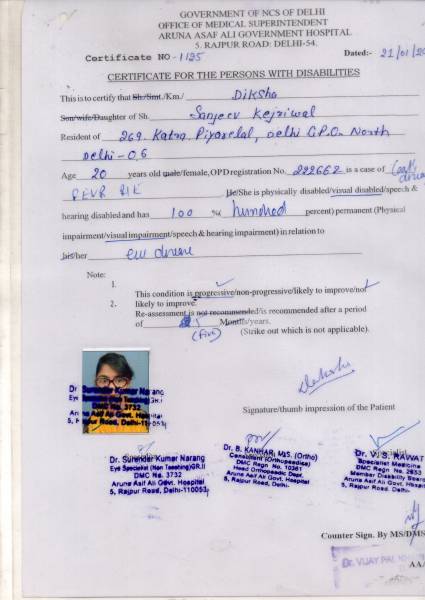 GOVERNMENT OF NCS OF DELHI
OFFICE OF MEDICAL SUPERINTENDENT
ARUNA ASAF ALI GOVERNMENT HOSPITAL
5. RAJPUR ROAD: DELHI-54.
Certificate NO -1125 Dated:- 21/01/20
CERTIFICATE FOR THE PERSONS WITH DISABILITIES
This is to certify that Sh./Smt./Km./ Diksha
Son/wife/Daughter of Sh. Sanjeev Kejriwal
Resident of 269. Katra Piyarelal, Delhi G.P.O. North
Delhi-06
Age 20 years old male/female, OPD registration No. 222662 is a case of
He/She is physically disabled/visual disabled/speech &
hearing disabled and has 100 % ( hundred percent) permanent (Physical
impairment/visual impairment/speech & hearing impairment) in relation to
his/her
Note:
1. This condition is progressive/non-progressive/likely to improve/not
likely to improve.
2. Re-assessment is not recommended/is recommended after a period
of 5 Months/years.
(Five) (Strike out which is not applicable).
Diksha
Signature/thumb impression of the Patient
Dr. Surender Kumar Narang
Eye Specialist (Non Teaching)GR.II
DMC No. 3732
Aruna Asif Ali Govt. Hospital
5, Rajpur Road, Delhi-110053
Dr. Surender Kumar Narang
Eye Specialist (Non Teaching)GR.II
DMC No. 3732
Aruna Asif Ali Govt. Hospital
5, Rajpur Road, Delhi-110053
Dr. B. KANHARI M.S. (Ortho)
Consultant (Orthopaedics)
DMC Regn No. 10361
Head Orthopaedic Dept.
Aruna Asif Ali Govt. Hospital
5, Rajpur Road, Delhi-
Dr. V. S. RAWAT
Specialist Medicine
DMC Regn. No. 2633
Member Disability Board
Aruna Asif Ali Govt. Hos
5, Rajpur Road, Delhi
Counter Sign. By MS/DMS
Dr. VIJAY PAL
AA